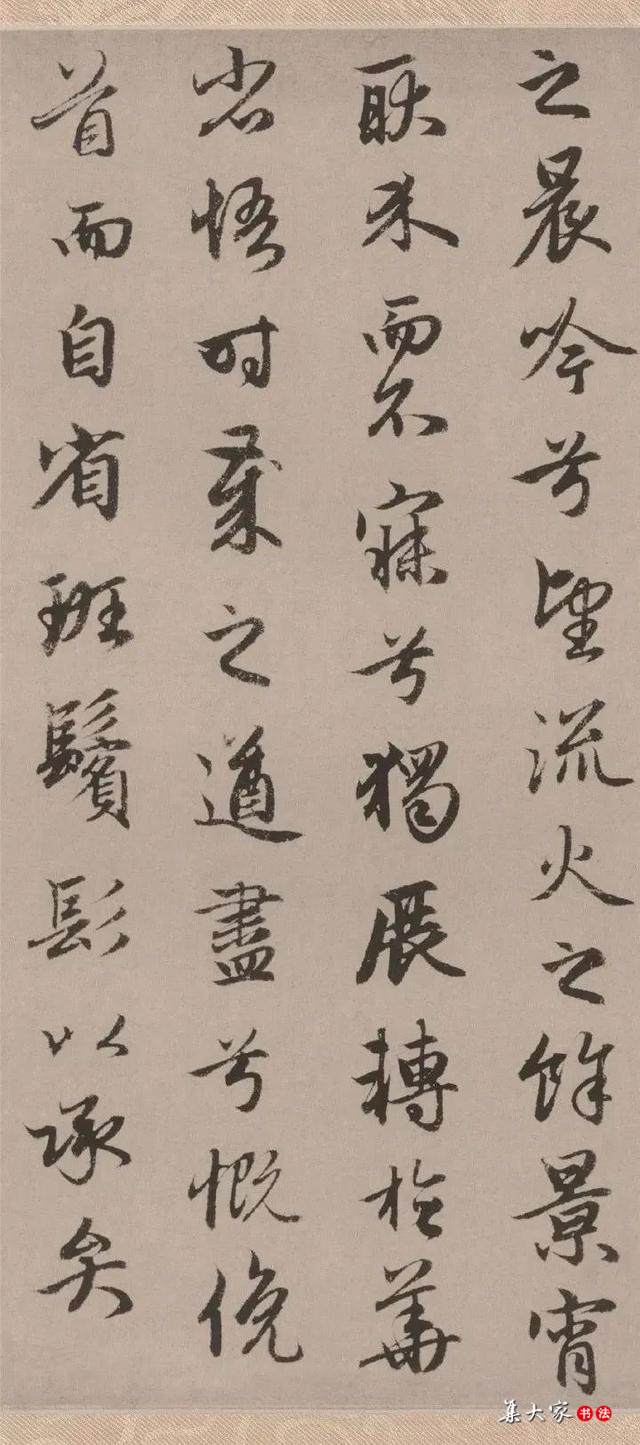 之晨吟兮望流火之餘景宵
耿介而不寐兮獨展轉於華
省悟时歲之遒盡兮慨俛
首而自省斑鬢髟以承弁
集大家书法